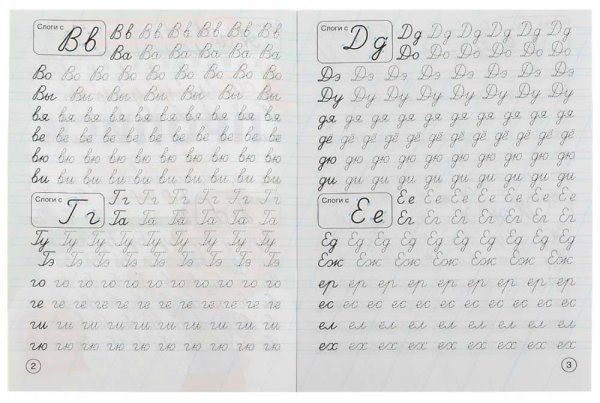 Слоги с Вв
Вв Вв Вв Вв Вв Вв Вв
Ва Ва Ва Ва Ва Ва Ва
Во Во Во Во Во Во Во Во Во
Вы Вы Вы Вы Вы Вы Вы
вя вя вя вя вя вя вя вя вя вя
ве ве ве ве ве ве ве ве ве ве
вю вю вю вю вю вю вю вю вю
ви ви ви ви ви ви ви ви ви
Слоги с Гг
Гг Гг Гг Гг Гг Гг
Га Га Га Га Га Га
Гу Гу Гу Гу Гу Гу Гу Гу Гу
Гэ Гэ Гэ Гэ Гэ Гэ Гэ Гэ
го го го го го го го го го го
ге ге ге ге ге ге ге ге ге
ги ги ги ги ги ги ги ги ги
гю гю гю гю гю гю гю гю гю
2
Слоги с Дд
Дд Дд Дд Дд Дд Дд
До До До До До До
Дэ Дэ Дэ Дэ Дэ Дэ Дэ Дэ
Ду Ду Ду Ду Ду Ду Ду Ду
дя дя дя дя дя дя дя дя дя дя
дё дё дё дё дё дё дё дё дё дё
дю дю дю дю дю дю дю дю дю
ди ди ди ди ди ди ди ди ди
Слоги с Ее
Ее Ее Ее Ее Ее Ее Ее
Ег Ег Ег Ег Ег Ег Ег
Ед Ед Ед Ед Ед Ед Ед Ед Ед
Еж Еж Еж Еж Еж Еж Еж
ер ер ер ер ер ер ер ер ер
ес ес ес ес ес ес ес ес ес ес
ел ел ел ел ел ел ел ел
ех ех ех ех ех ех ех ех
3